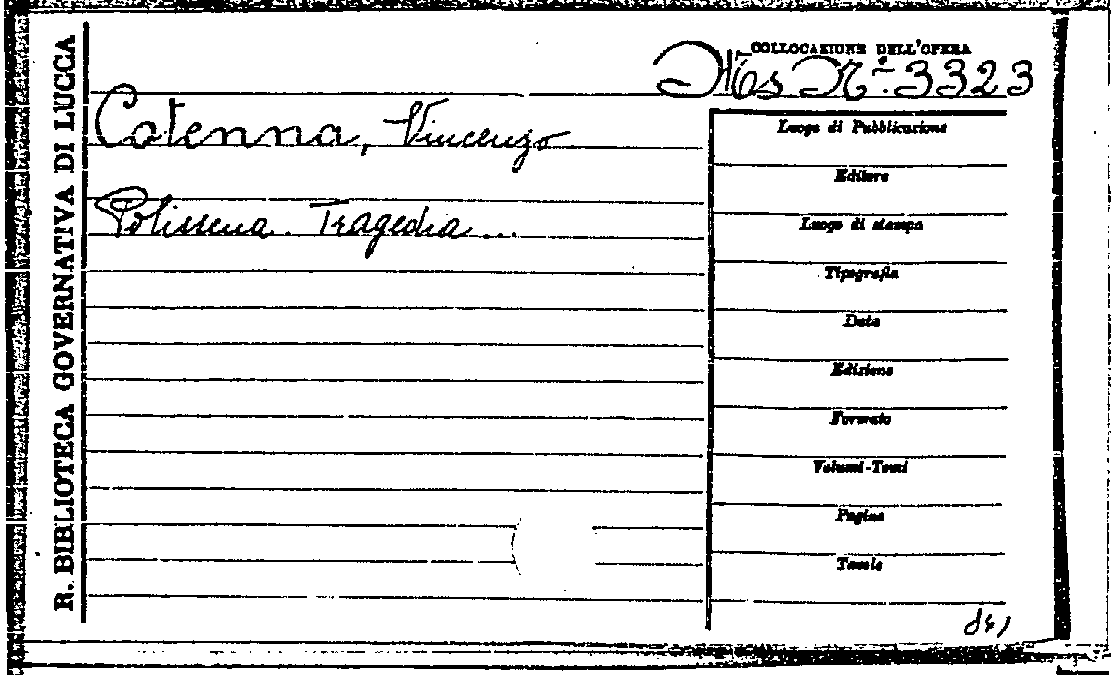 R. BIBLIOTECA GOVERNATIVA DI LUCCA
COLLOCAZIONE DELL'OPERA
Ms N.° 3323
Catenna, Vincenzo
Polissena. Tragedia...
Luogo di Pubblicazione
Editore
Luogo di stampa
Tipografia
Data
Edizione
Formato
Volumi-Tomi
Pagine
Tavole